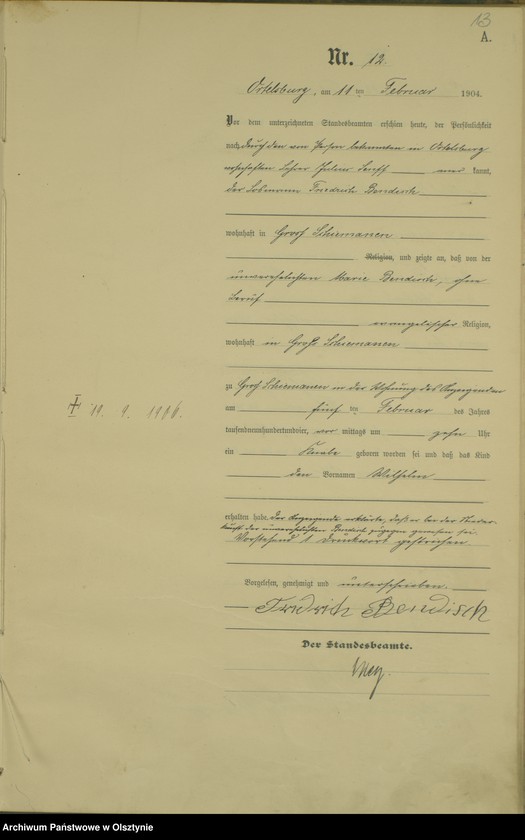 13
A.
Nr. 12.
Ortelsburg, am 11 ten Februar 1904.
Vor dem unterzeichneten Standesbeamten erschien heute, der Persönlichkeit
nach durch den von Person bekannten in Ortelsburg
wohnhaften Lehrer Julius kannt,
der Losmann Friedrich Bendisch
wohnhaft in Groß Schiemanen
Religion, und zeigte an, daß von der
unverehelichten Marie Bendisch, ohne
Beruf
evangelischer Religion,
wohnhaft in Groß Schiemanen
zu Groß Schiemanen in der Wohnung des Anzeigenden
am fünf ten Februar des Jahres
tausendneunhundertundvier, vor mittags um zehn Uhr
ein Knabe geboren worden sei und daß das Kind
den Vornamen Wilhelm
erhalten habe. Der Anzeigende erklärte, daß er bei der Nieder-
kunft der unverehelichten Bendisch zugegen gewesen sei.
Vorstehend 1 Druckwort gestrichen.
Vorgelesen, genehmigt und unterschrieben.
Fridrich Bendisch
Der Standesbeamte.
Archiwum Państwowe w Olsztynie